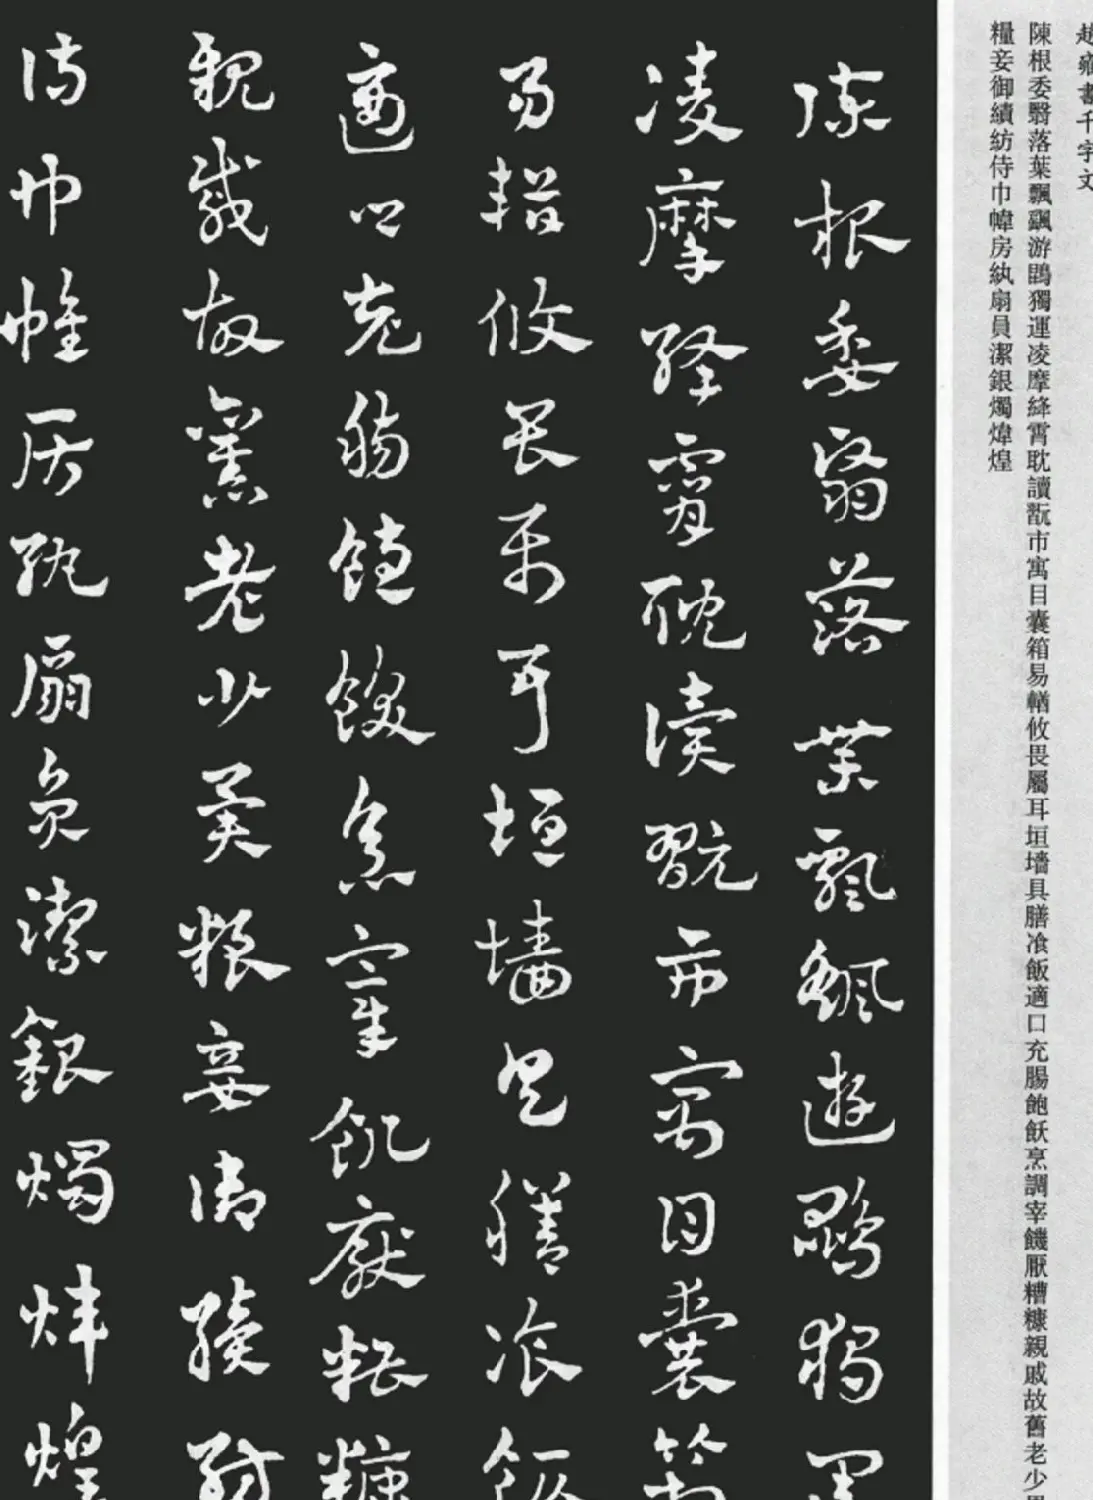 趙雍書千字文
陳根委翳落葉飄颻游鵾獨運凌摩絳霄耽讀翫市寓目囊箱易輶攸畏屬耳垣墻具膳飡飯適口充腸飽飫烹調宰饑厭糟糠親戚故舊老少異
糧妾御績紡侍巾幃房紈扇員潔銀燭煒煌
陳根委翳落葉飄颻遊鵾獨運
凌摩絳霄耽讀翫市寓目囊箱
易輶攸畏屬耳垣墻具膳飡飯
適口充腸飽飫烹宰飢厭糟糠
親戚故舊老少異糧妾御績紡
侍巾帷房紈扇員潔銀燭煒煌